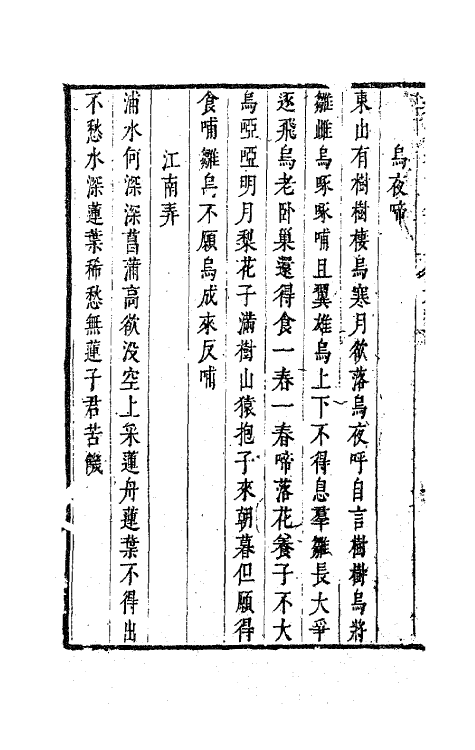 烏夜啼
東山有樹樹棲烏寒月欲落烏夜呼自言樹樹烏將
雛雌烏啄啄哺且翼雄烏上下不得息羣雛長大爭
逐飛烏老卧巢還得食一春一春啼落花養子不大
烏啞啞明月梨花子滿樹山猿抱子來朝暮但願得
食哺雛烏不願烏成來反哺
江南弄
浦水何深深菖蒲高欲没空上采蓮舟蓮葉不得出
不愁水深蓮葉稀愁無蓮子君苦饑